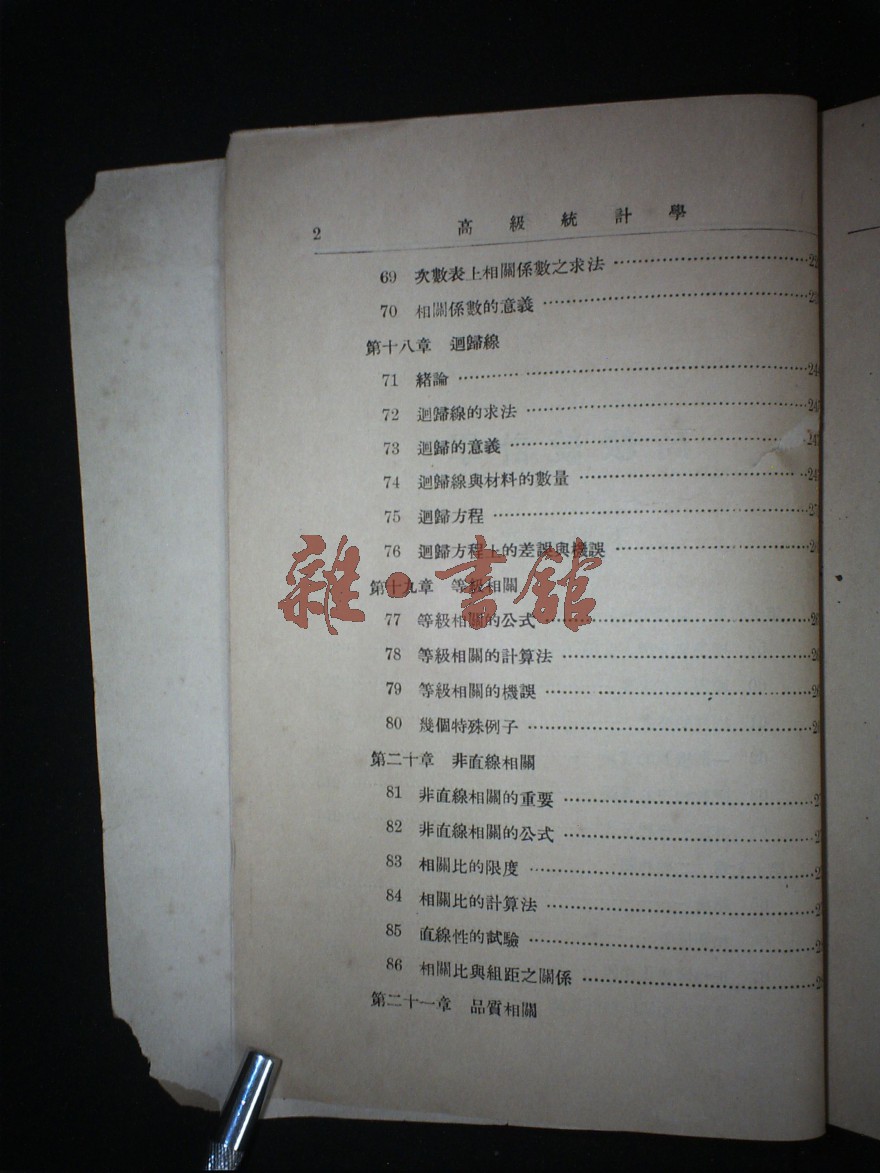 2 高級統計學
69 次數表上相關係數之求法
70 相關係數的意義
第十八章 迴歸線
71 緒論
72 迴歸線的求法
73 迴歸的意義
74 迴歸線與材料的數量
75 迴歸方程
76 迴歸方程上的差誤與機誤
第十九章 等級相關
77 等級相關的公式
78 等級相關的計算法
79 等級相關的機誤
80 幾個特殊例子
第二十章 非直線相關
81 非直線相關的重要
82 非直線相關的公式
83 相關比的限度
84 相關比的計算法
85 直線性的試驗
86 相關比與組距之關係
第二十一章 品質相關
雜·書館